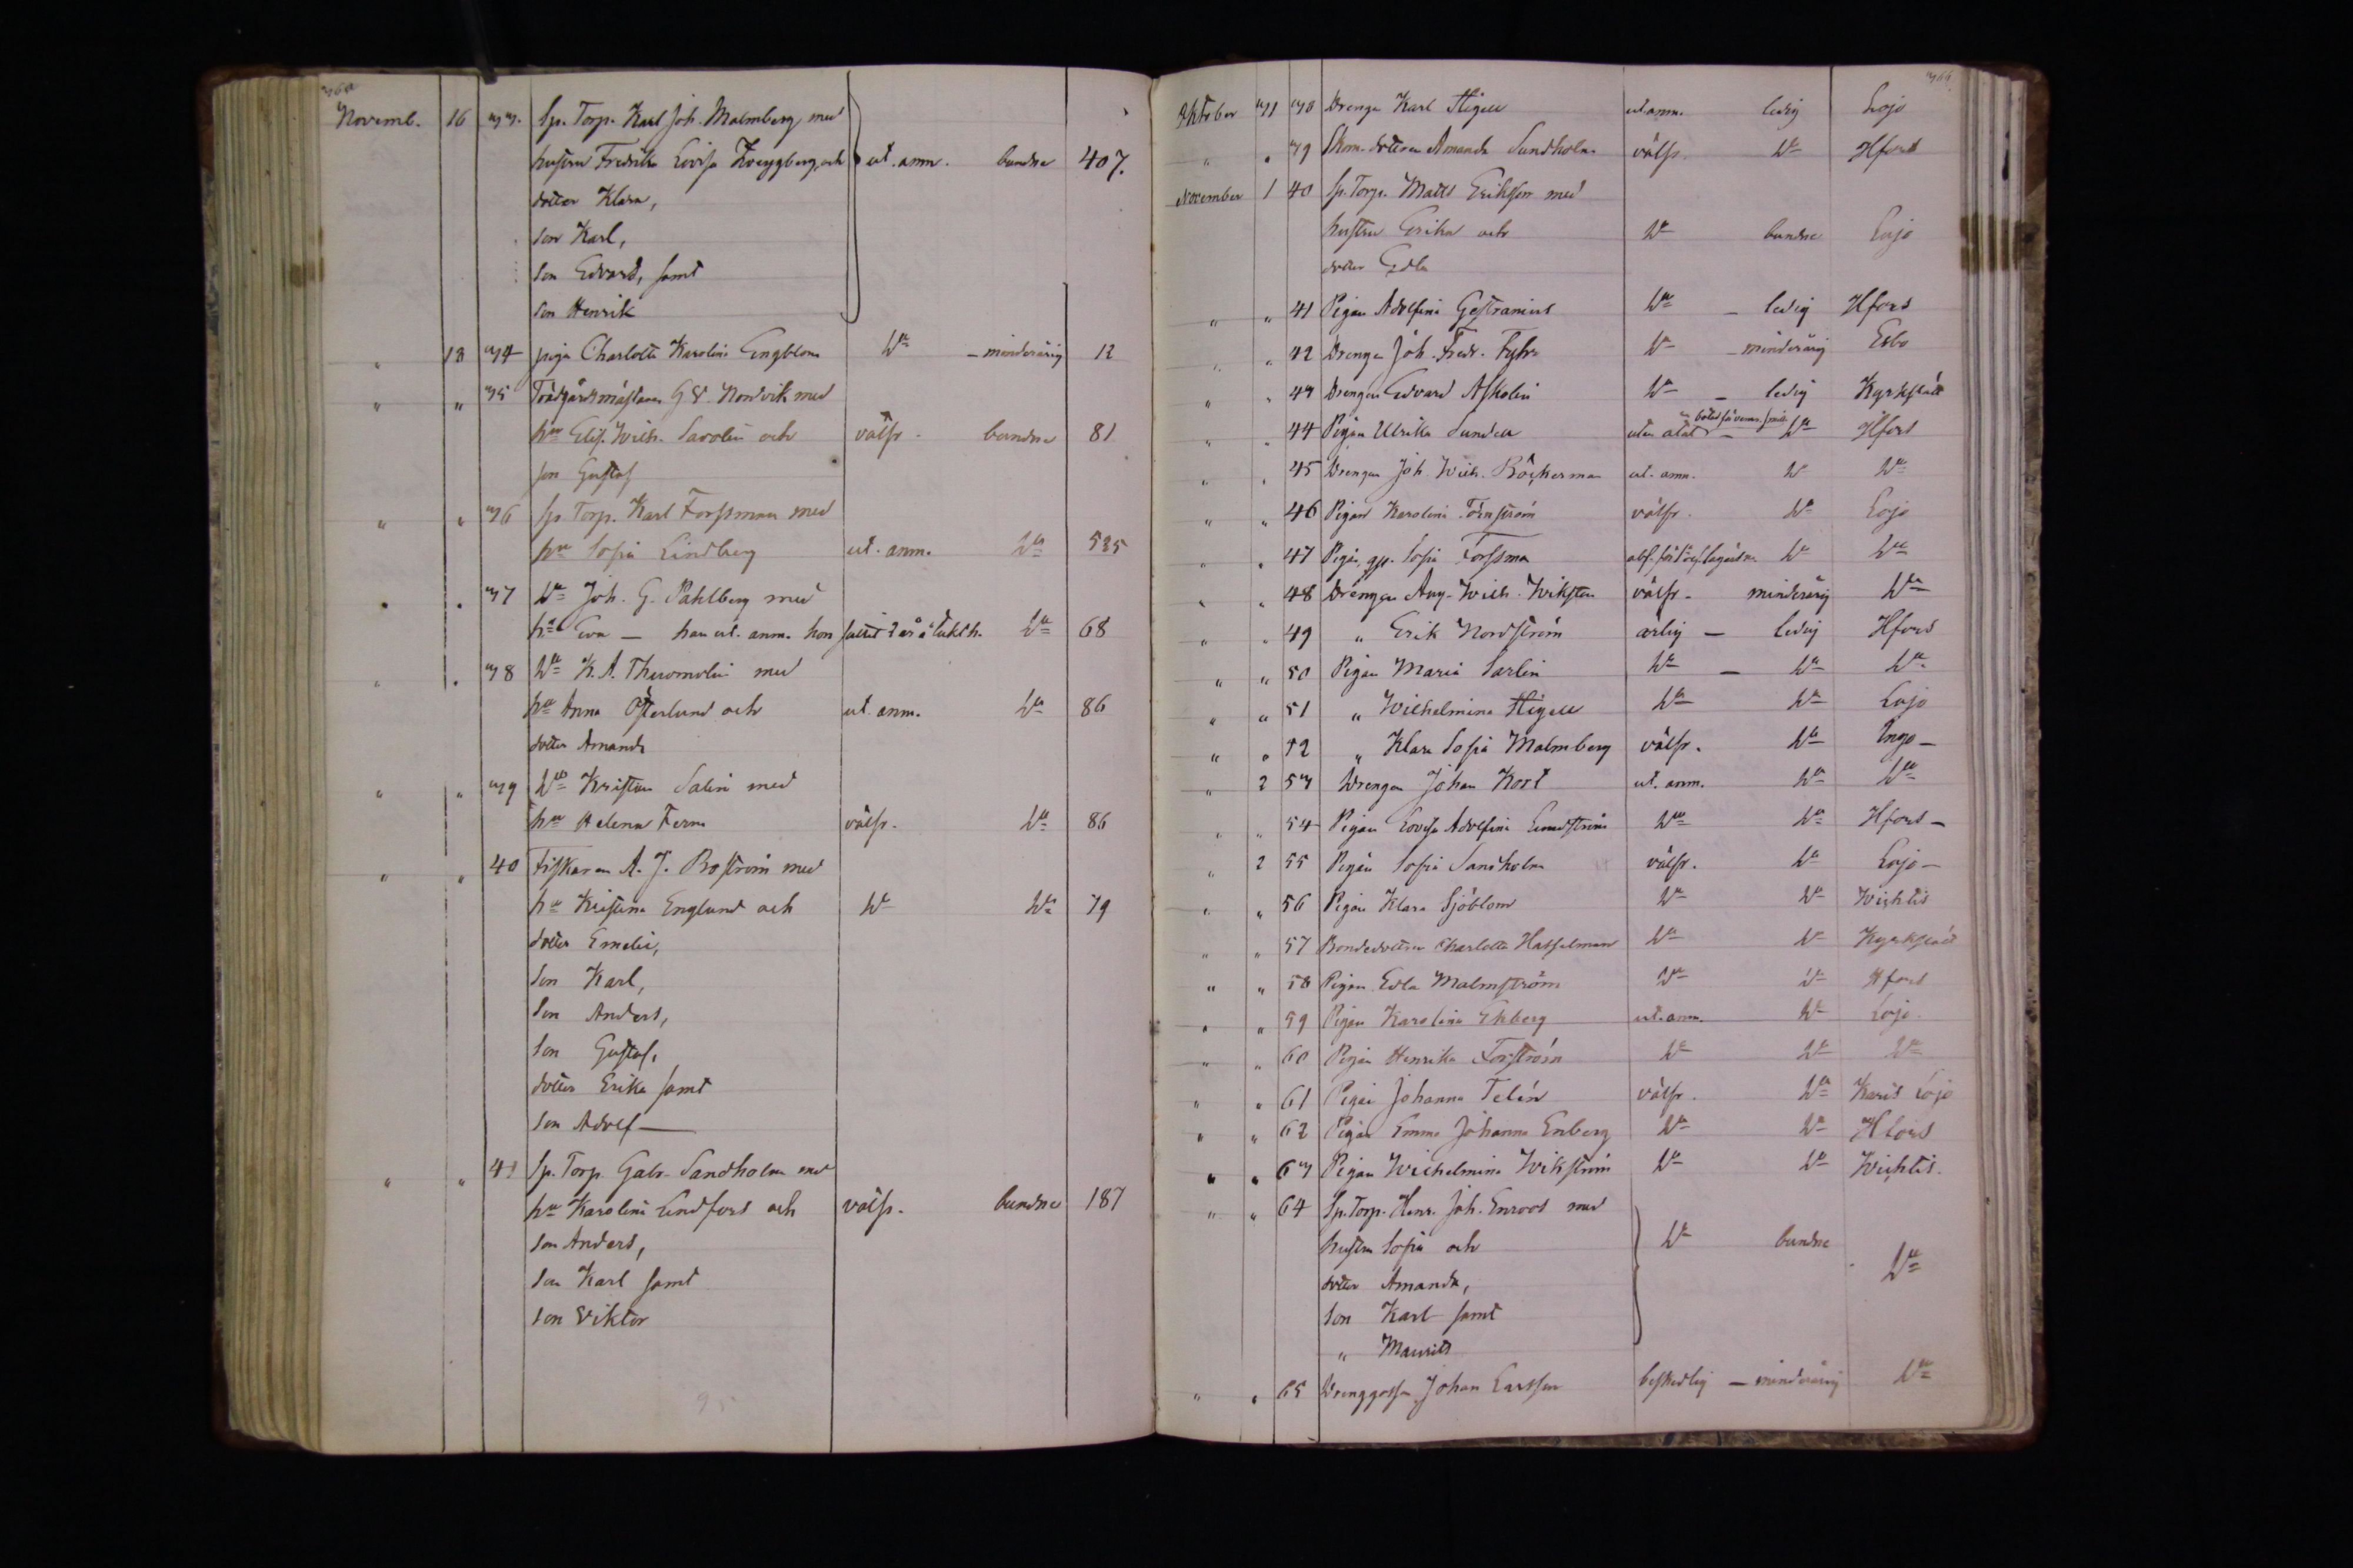 Novemb. 16 33. Sp. Torp. Karl Joh. Malmberg med
hustrun Fredrika Lovisa Zweygberg, och ut. anm. bundne 407.
dotter Klara,
son Karl,
son Edvard, samt
son Henrik
" 18 34 piga Charlotta Karolina Engblom Do – minderårig 12
" " 35 Trädgårdsmästaren G. V. Nordvik med
hu Elis. Wilh. Savolin och välfr. bundne 81
son Gustaf
" " 36 Sp. Torp. Karl Forssman med
hu Sofia Lindberg ut. anm. Do 535
" " 37 Do Joh. G. Pahlberg med
hu Eva – han ut. anm. hon Do 68
" " 38 Do K. A. med
hu Anna Österlund och ut. anm. Do 86
dotter Amanda
" " 39 Do Kristian Salin med
hu Helena Ferm välfr. Do 86
" " 40 Fiskaren A. J. Boström med
hu Kristina Englund och Do Do 79
dotter Emelie,
son Karl,
son Anders,
son Gustaf,
dotter Erika samt
son Adolf —
" " 41 Sp. Torp. Gabr. Sandholm med
hu Karolina Lindfors och välfr. bundne 187
son Anders,
son Karl samt
son Viktor
95
Oktober 31 38 Drengen Karl Stigell ut. anm. ledig Lojo
" " 39 Skom. dottren Amanda Sundholm välfr. Do Hfors
November 1 40 Sp. Torp. Matts Eriksson med
hustrun Erika och Do bundne Lojo
dotter Edla
" " 41 Pigan Adolfina Gestranius Do – ledig Hfors
" " 42 Drengen Joh. Fredr. Fyhr Do – minderårig Esbo
" " 43 Drengen Edvard Askolin Do – ledig Kyrkslätt
" " 44 Pigan Ulrika Sundell Do Hfors
" " 45 Drengen Joh. Wilh. Böckerman ut. anm. Do Do
" " 46 Pigan Karolina Törnström välfr. Do Lojo
" " 47 Pigan Sofia Forssman Do Do
" " 48 Drengen Aug. Wilh. Wiksten välfr. minderårig Do
" " 49 " Erik Nordström ärlig – ledig Hfors
" " 50 Pigan Maria Sarlin Do – Do Do
" " 51 " Wilhelmina Stigell Do Do Lojo
" " 52 " Klara Sofia Malmberg välfr. Do Ingo –
" 2 53 Drengen Johan Kort ut. anm. Do Do
" " 54 Pigan Lovisa Adolfina Lundström Do Do Hfors –
" 2 55 Pigan Sofia Sandholm välfr. Do Lojo –
" " 56 Pigan Klara Sjöblom Do Do Wichtis
" " 57 Bondedottren Charlotta Hasselman Do Do Kyrkslätt
" " 58 Pigan Edla Malmström Do Do Hfors
" " 59 Pigan Karolina Ekberg ut. anm. Do Lojo.
" " 60 Pigan Henrika Forström Do Do Do
" " 61 Pigan Johanna Telén välfr. Do Karis Lojo
" " 62 Pigan Emma Johanna Enberg Do Do Hfors
" " 63 Pigan Wilhelmina Wikström Do Do Wichtis.
" " 64 Sp. Torp. Henr. Joh. Enroos med
hustru Sofia och Do bundne
dotter Amanda, Do
son Karl samt
" Maurits
" " 65 Drenggossen Johan Larsson beskedlig – minderårig Do